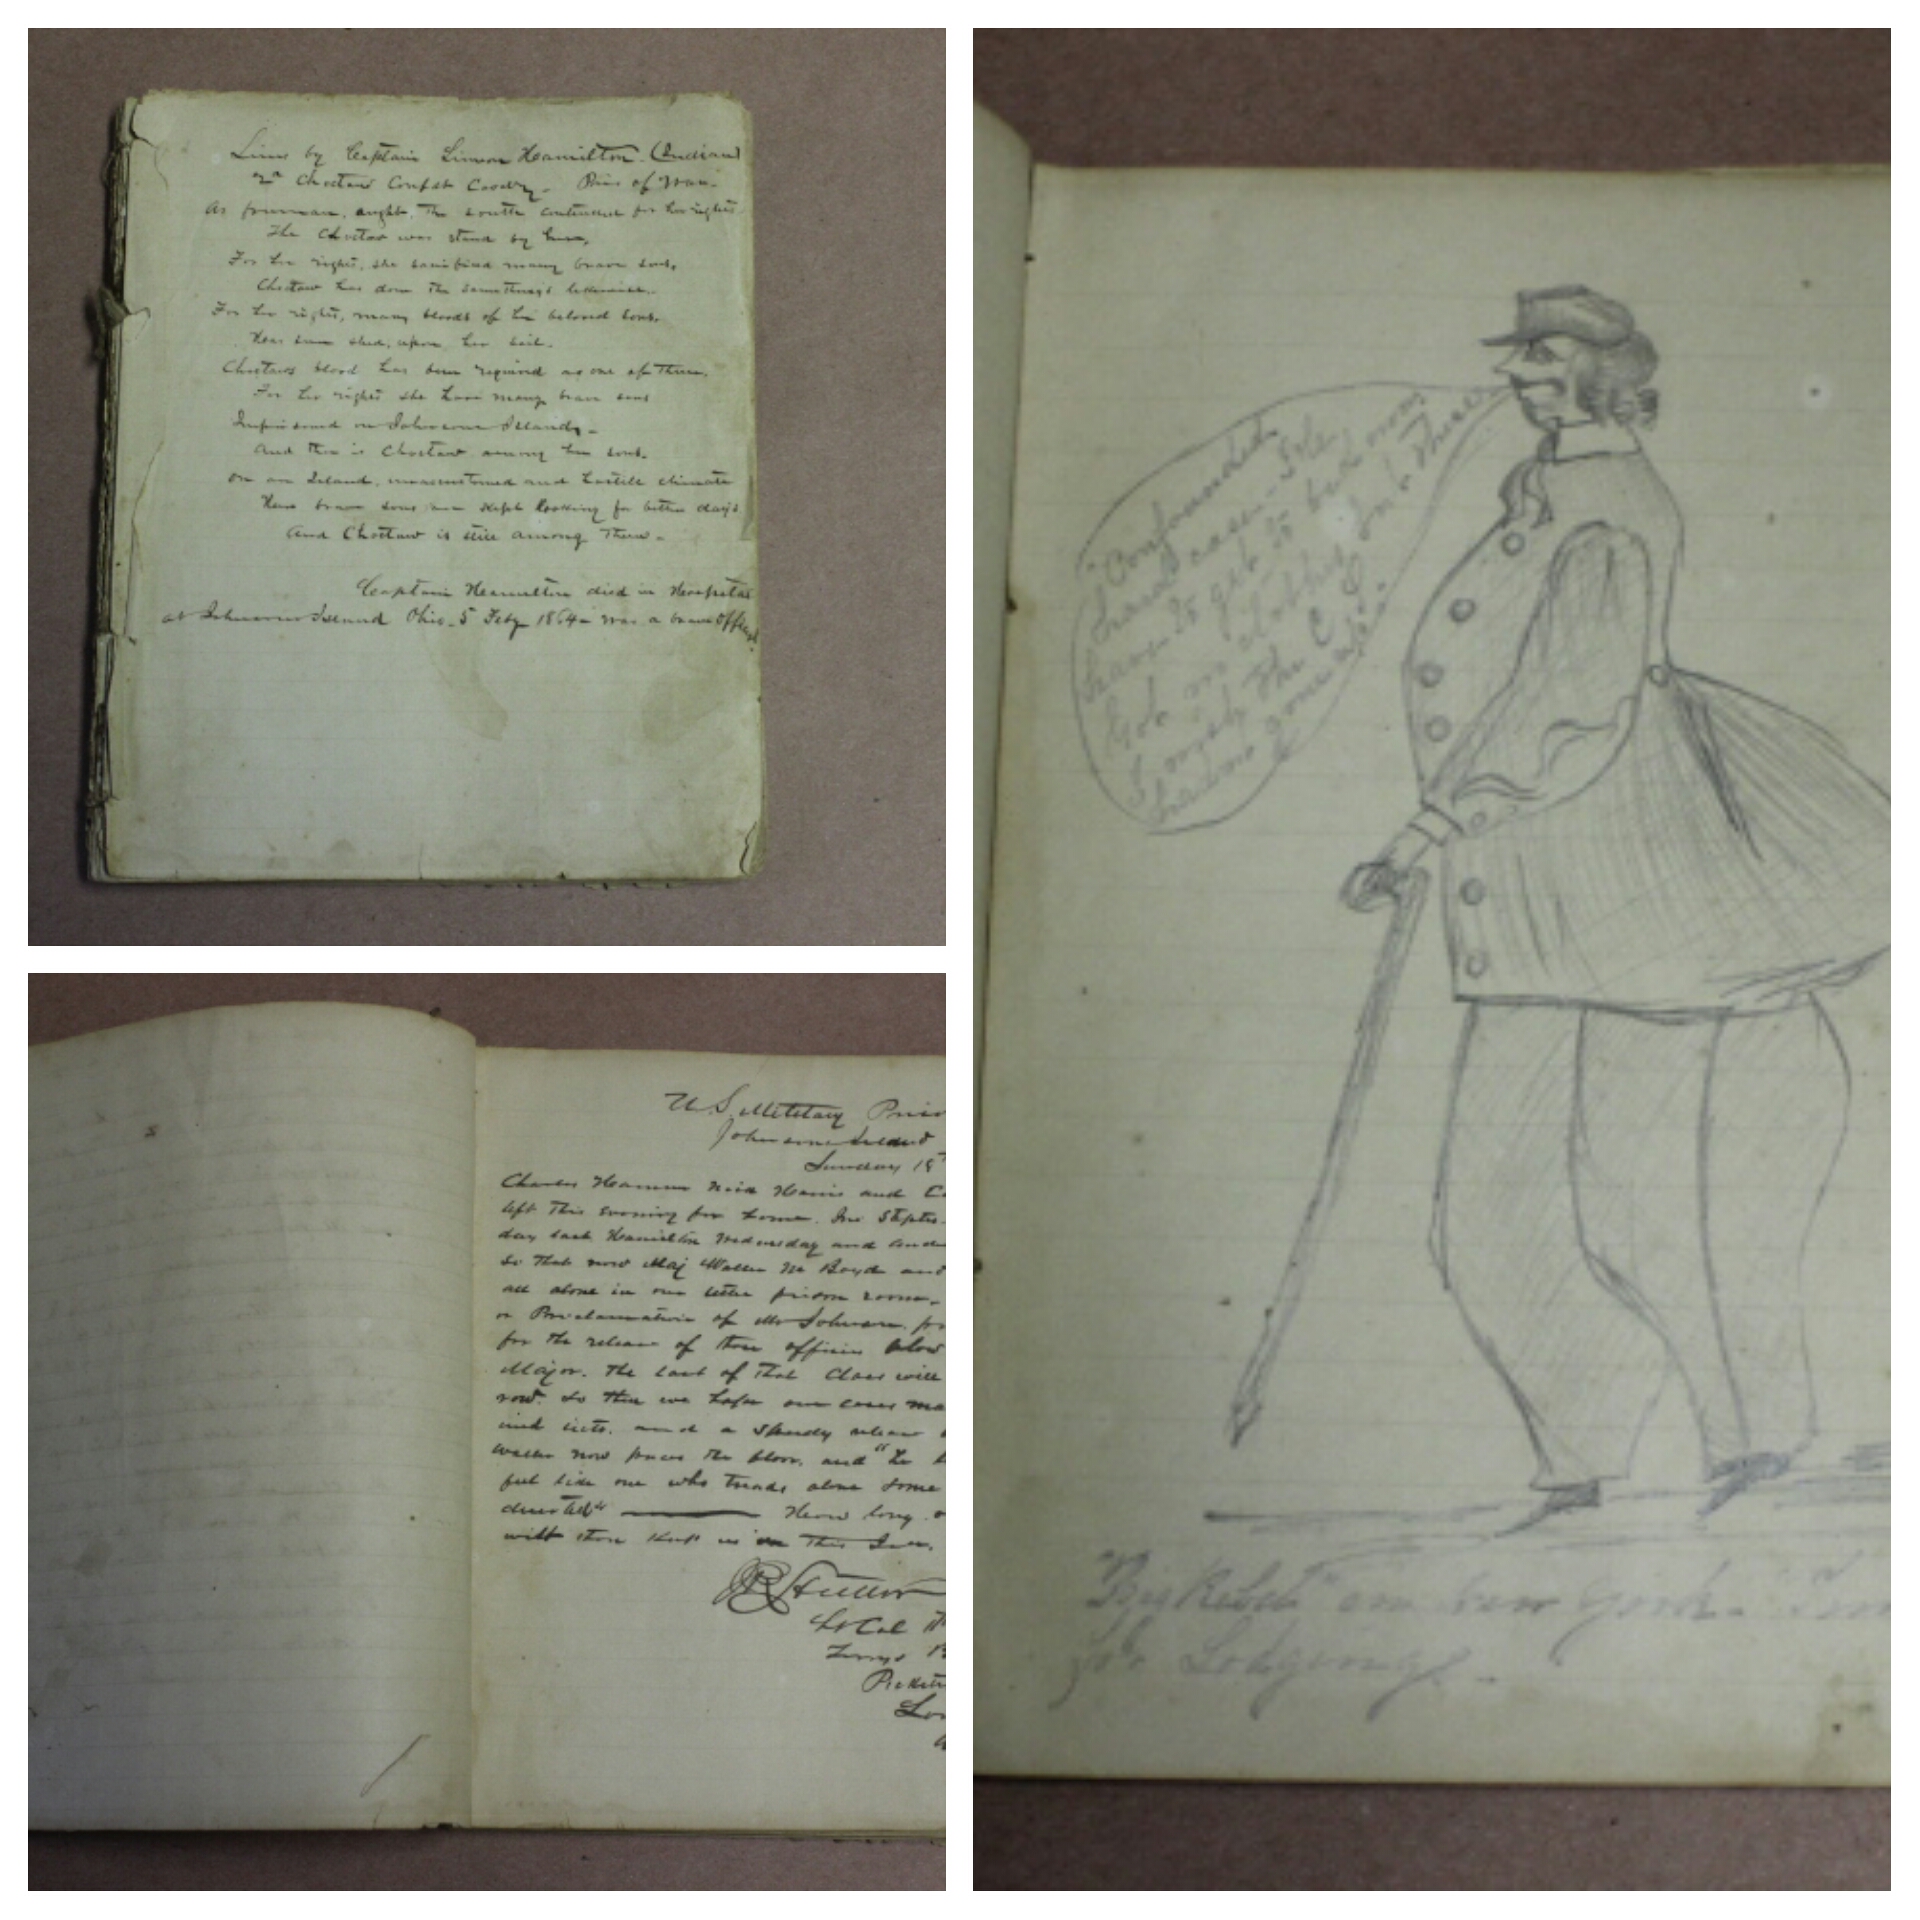 Lines by Captain Simeon Hamilton. (Indian)
2nd Choctaw Confdt Cavalry. Pris of War.
As freeman, aught, The south contended for her rights.
The Choctaw was stand by her,
For her rights, she sacrificed many brave sons,
Choctaw has done the same things likewise.
For her rights, many bloods of his beloved sons.
Has been shed, upon her soil.
Choctaws blood has been required as one of them.
For her rights she have many brave sons
Imprisoned on Johnsons Island,
And there is Choctaw among her sons.
On an Island, unaccustomed and hostile climate
Her brave sons are kept looking for better days.
And Choctaw is still among them.
Captain Hamilton died in Hospital
at Johnsons Island Ohio. 5 Feby 1864 was a brave
U.S. Military Pris
Johnsons Island
Sunday 18
Charles Nick Harris and
left this evening for home. Jno
day last Hamilton Wednesday and
So that now Maj Waller M Boyd and
all alone in our little prison room.
or Proclamation of Mr Johnson
for the release of those officers below
Major. The last of that Class will
row. So then we hope our cases
and a speedy release
Waller now paces the floor, and "he
feel like one who treads alone some
deserted" How long
wilt thou keep us in this
Lt Col
Pickett
"Confounded
hard case. I'll
have to got to bed now
Got no clothes but these
I wish the C. S.
had no gone up.
"Big Rebel" in New York.
for Lodgings.